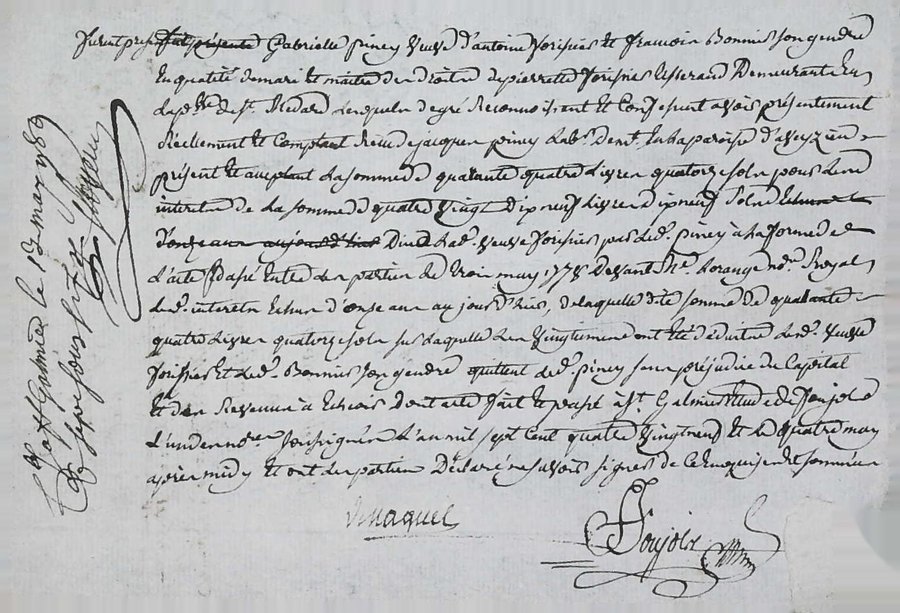 furent presents fut présente Gabrielle piney veuve d'antoine Forissier et francois Bonnier son gendre
En qualité de mari et maitre des droits de pierrette forissier Lesperand Demeurants En
La p.sse de St. Medard Lesquels de gré Reconnoissent et Confessent avoir présentement
Réellement et Comptant Receu de jacques piney Lab.r dem.t En La paroisse d'aveyzieu
présent et acceptant La somme de quarante quatre Livres quatorze sols pour le
interets de La somme de quatre vingt dix neuf Livres dix neuf sols
d'onze ans aujourd'hui Due à Lad. veuve forissier par led. piney à La forme de
L'acte passé Entre Les parties Le trois may 1778 Devant Me. Lorange no.re Royal
Led. interets Echus d'onze ans au jour d'hier, de laquelle dite somme de quarante
quatre Livres quatorze sols sur Laquelle Les vingtiemes ont été déduits Lad. veuve
forissier et led. Bonnier son gendre quittent led. piney sans préjudice du Capital
Et des Revenus à Echoir Dont acte fait et passé à St. Galmier Etude de Soujols
L'un des no.res soussignés L'an mil sept Cent quatre vingt neuf et Le quatre may
après midy et ont Les parties Déclaré ne savoir signer de Ce Enquises et sommées
Soujols
a St Galmier le 18 may 1789